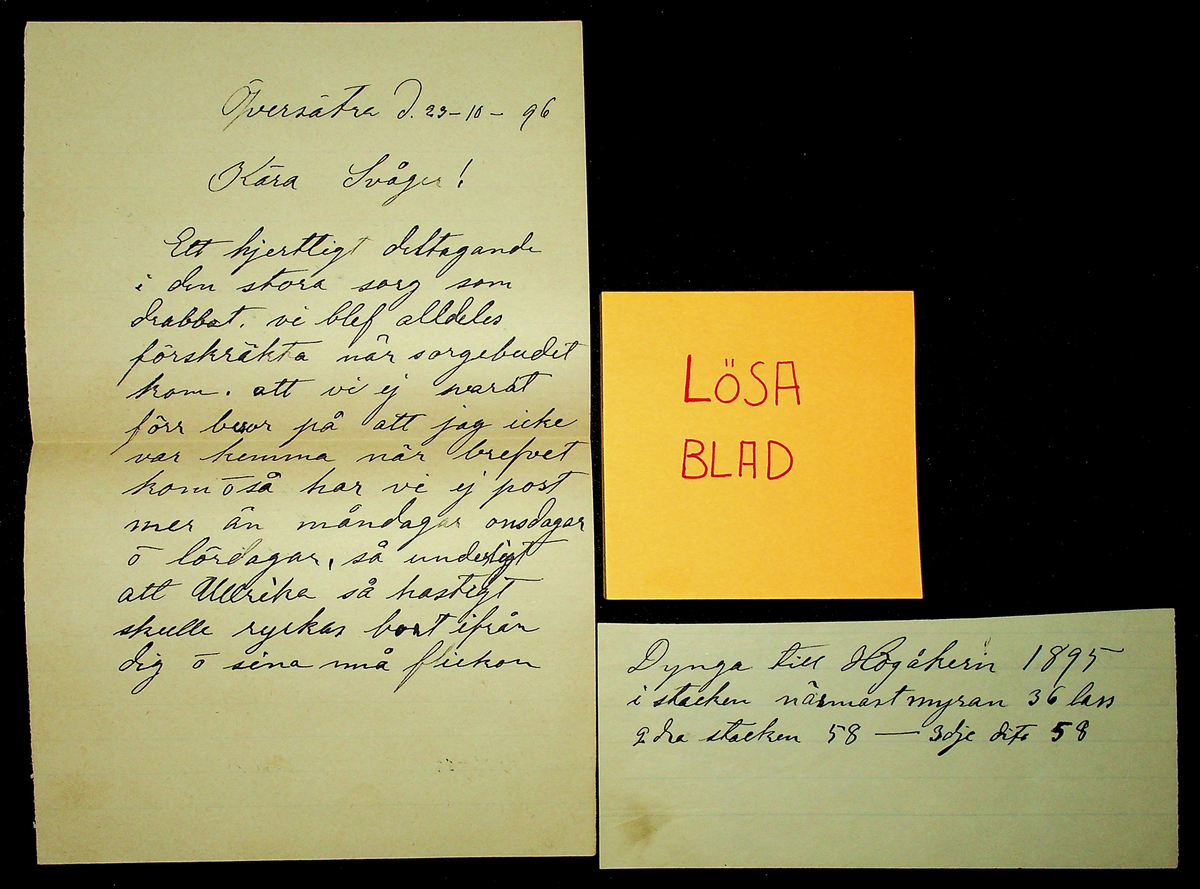 Öfversätra d. 23-10-96
Kära Svåger!
Ett hjertligt deltagande
i den stora sorg som
drabbat. vi blef alldeles
förskräkta när sorgebudet
kom. att vi ej svarat
förr beror på att jag icke
var hemma när brefvet
kom o så har vi ej post
mer än måndagar onsdagar
o lördagar, så underligt
att Ullrika så hastigt
skulle ryckas bort ifrån
dig o sina små flickor
LÖSA
BLAD
Dynga till Högåkern 1895
i stacken närmast myran 36 lass
2dra stacken 58 — 3dje dito 58